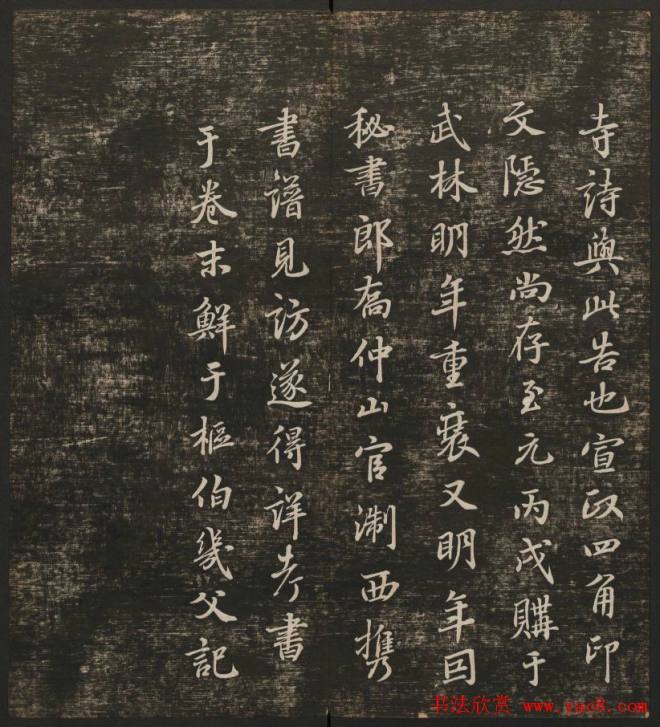 寺詩與此告也宣政四角印
文隱然尚存至元丙戌購于
武林明年重裝又明年因
秘書郎喬仲山官淛西攜
書譜見訪遂得詳考書
于卷末鮮于樞伯幾父記
书法欣赏 www.yac8.com